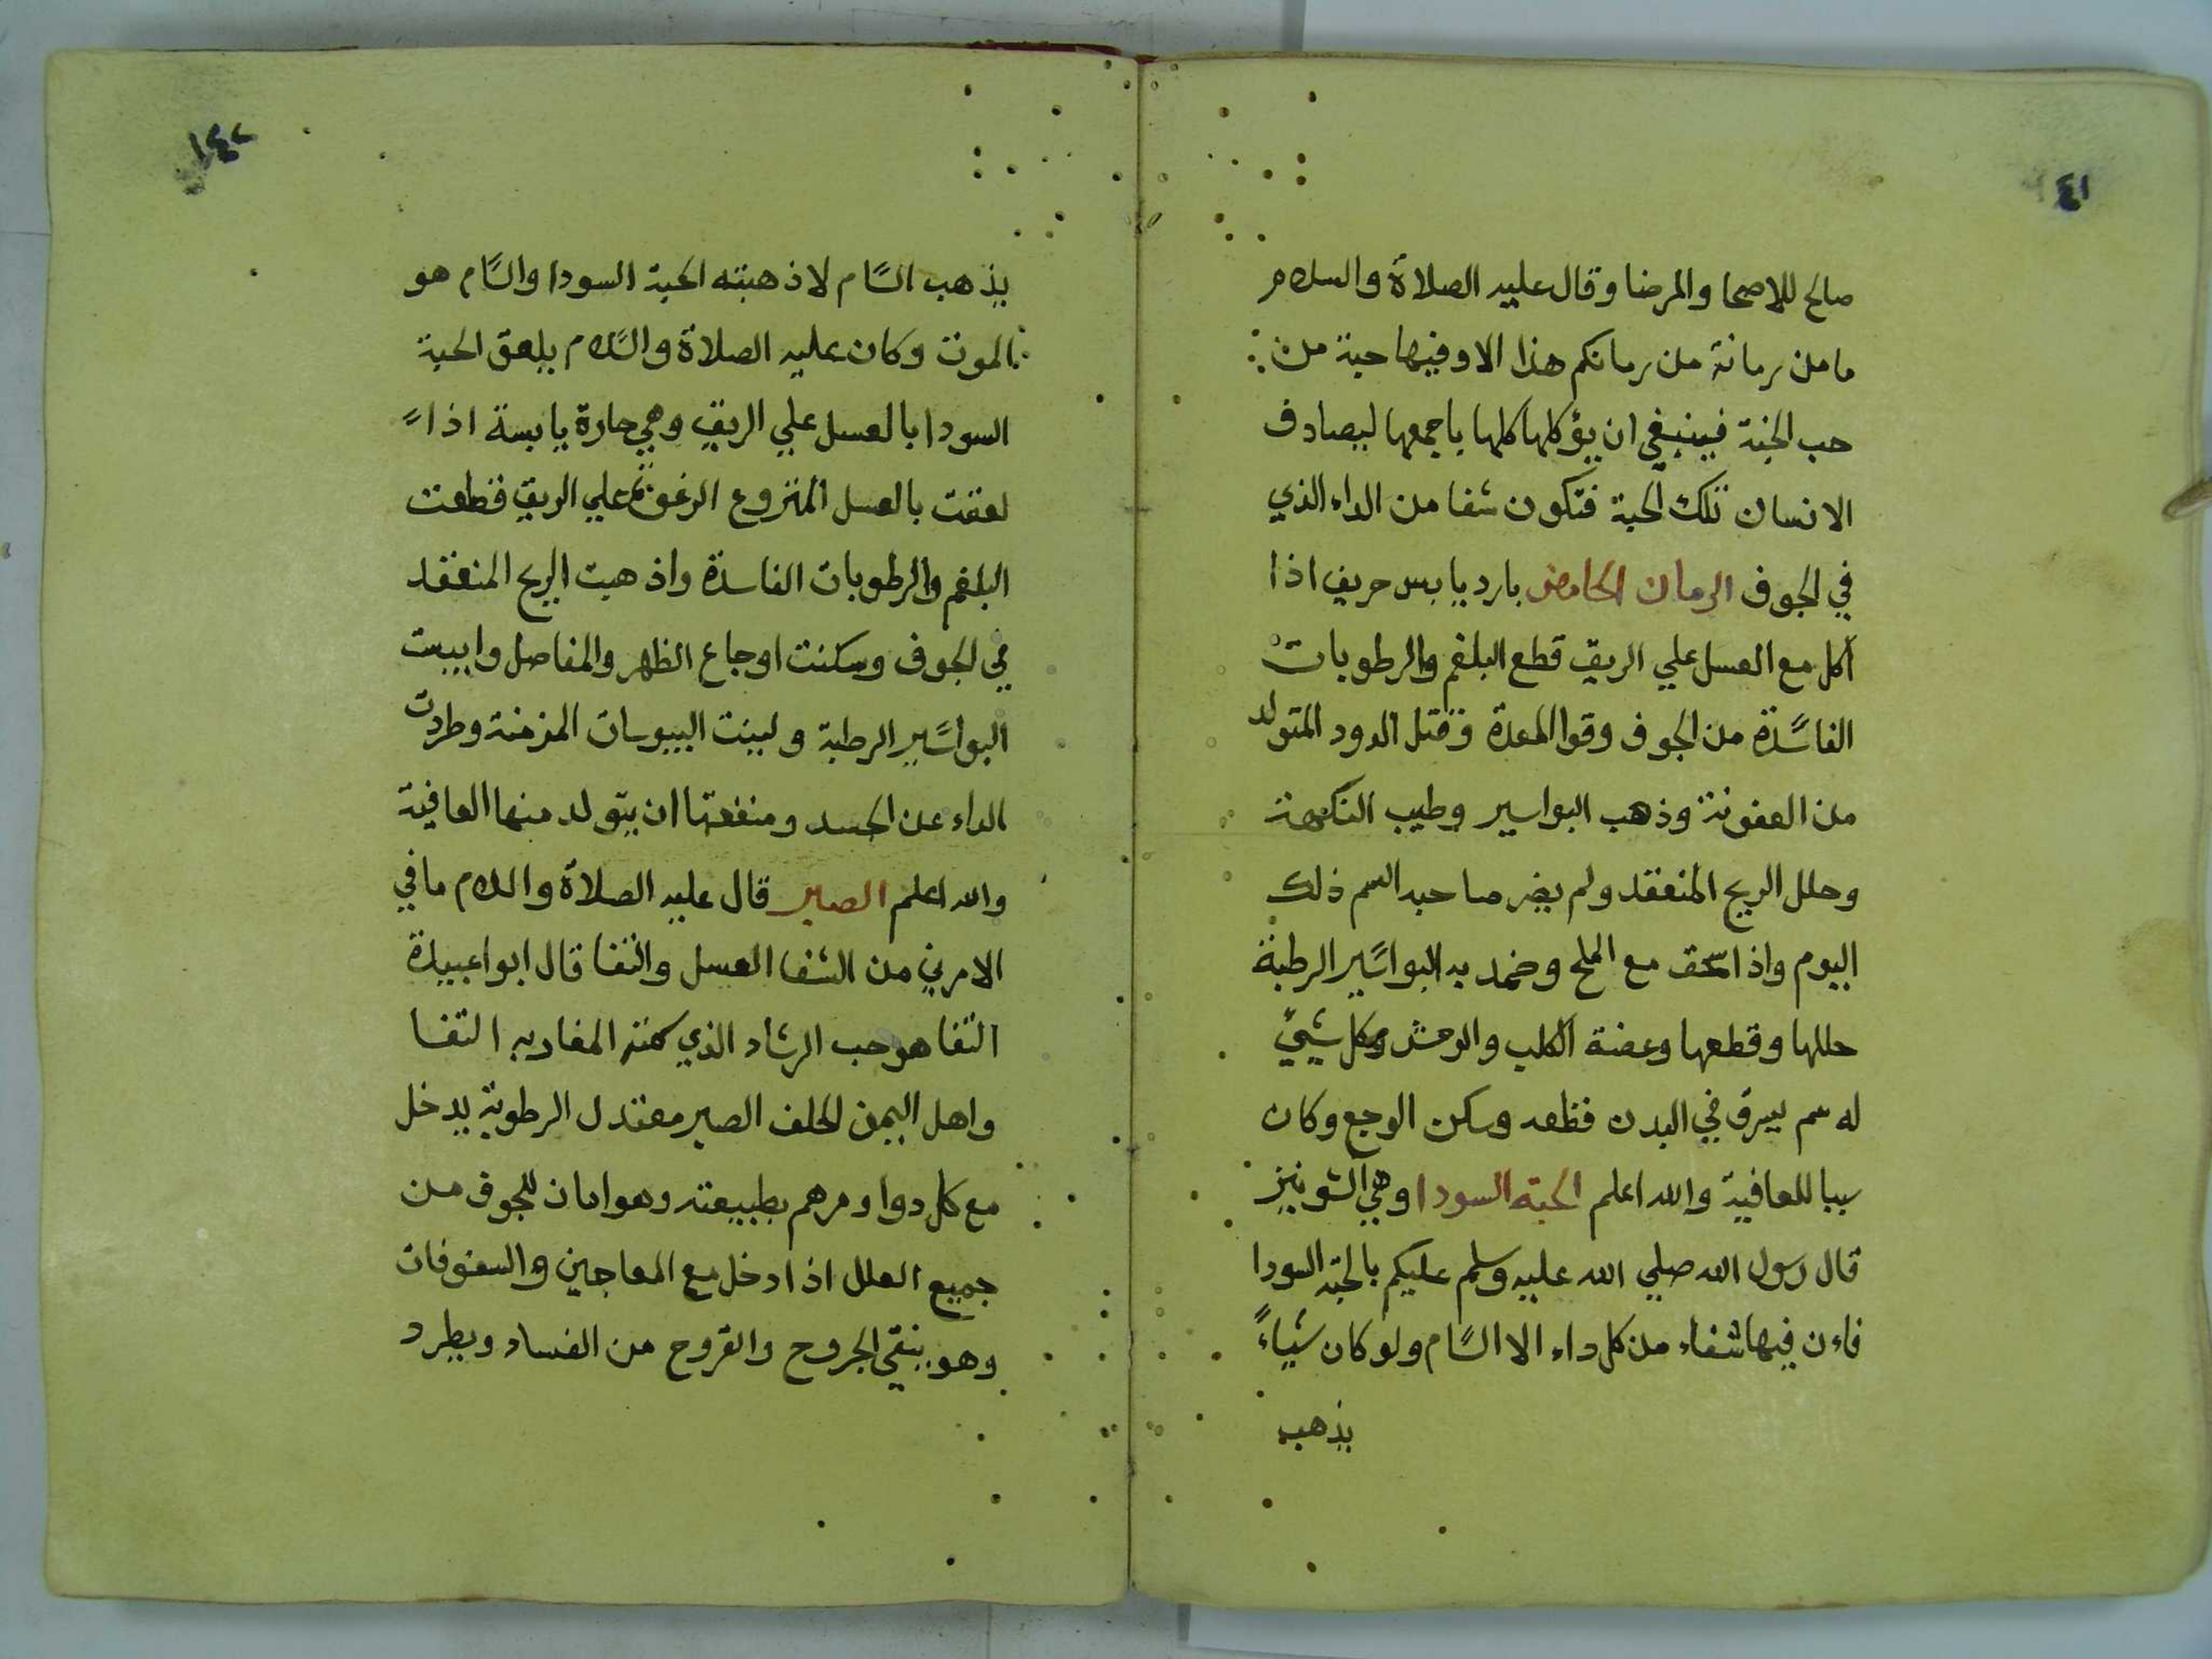 ٤١
صالح للاصحا والمرضا وقال عليه الصلاة والسلام
ما من رمانة من رمانكم هذا الا وفيها حبة من
حب الجنة فينبغي ان يؤكلها كلها باجمعها ليصادف
الانسان تلك الحبة فتكون شفا من الداء الذي
في الجوف الرمان الحامض بارد يابس حريف اذا
أكل مع العسل علي الريق قطع البلغم والرطوبات
الفاسدة من الجوف وقوا المعدة وقتل الدود المتولد
من العفونة وذهب البواسير وطيب النكهة
وحلل الريح المنعقد ولم يضر صاحبه السم ذلك
اليوم واذا سحق مع الملح وضمد به البواسير الرطبة
حللها وقطعها وعضة الكلب والوحش وكل شيئ
له سم يسرق في البدن قطعه وسكن الوجع وكان
سببا للعافية والله اعلم الحبة السودا وهي الشونيز
قال رسول الله صلي الله عليه وسلم عليكم بالحبة السودا
فاءن فيها شفاء من كل داء الا السام ولو كان شياءً
يذهب
١٤٢
يذهب السام لاذهبته الحبة السودا والسام هو
الموت وكان عليه الصلاة والسلام يلعق الحبة
السودا بالعسل علي الريق وهي حارة يابسة اذا
لعقت بالعسل المنزوع الرغوة علي الريق قطعت
البلغم والرطوبات الفاسدة واذهبت الريح المنعقد
في الجوف وسكنت اوجاع الظهر والمفاصل وايبست
البواسير الرطبة ولينت اليبوسات المزمنة وطردت
الداء عن الجسد ومنفعتها ان يتولد منها العافية
والله اعلم الصبر قال عليه الصلاة والسلام ما في
الامرين من الشفا العسل والثفا قال ابوا عبيدة
الثفا هو حب الرشاد الذي المغاربه التفا
واهل اليمن الحلف الصبر معتدل الرطوبة يدخل
مع كل دوا ومرهم بطبيعته وهو امان للجوف من
جميع العلل اذا دخل مع المعاجين والسفوفات
وهو ينقي الجروح والقروح من الفساد ويطرد